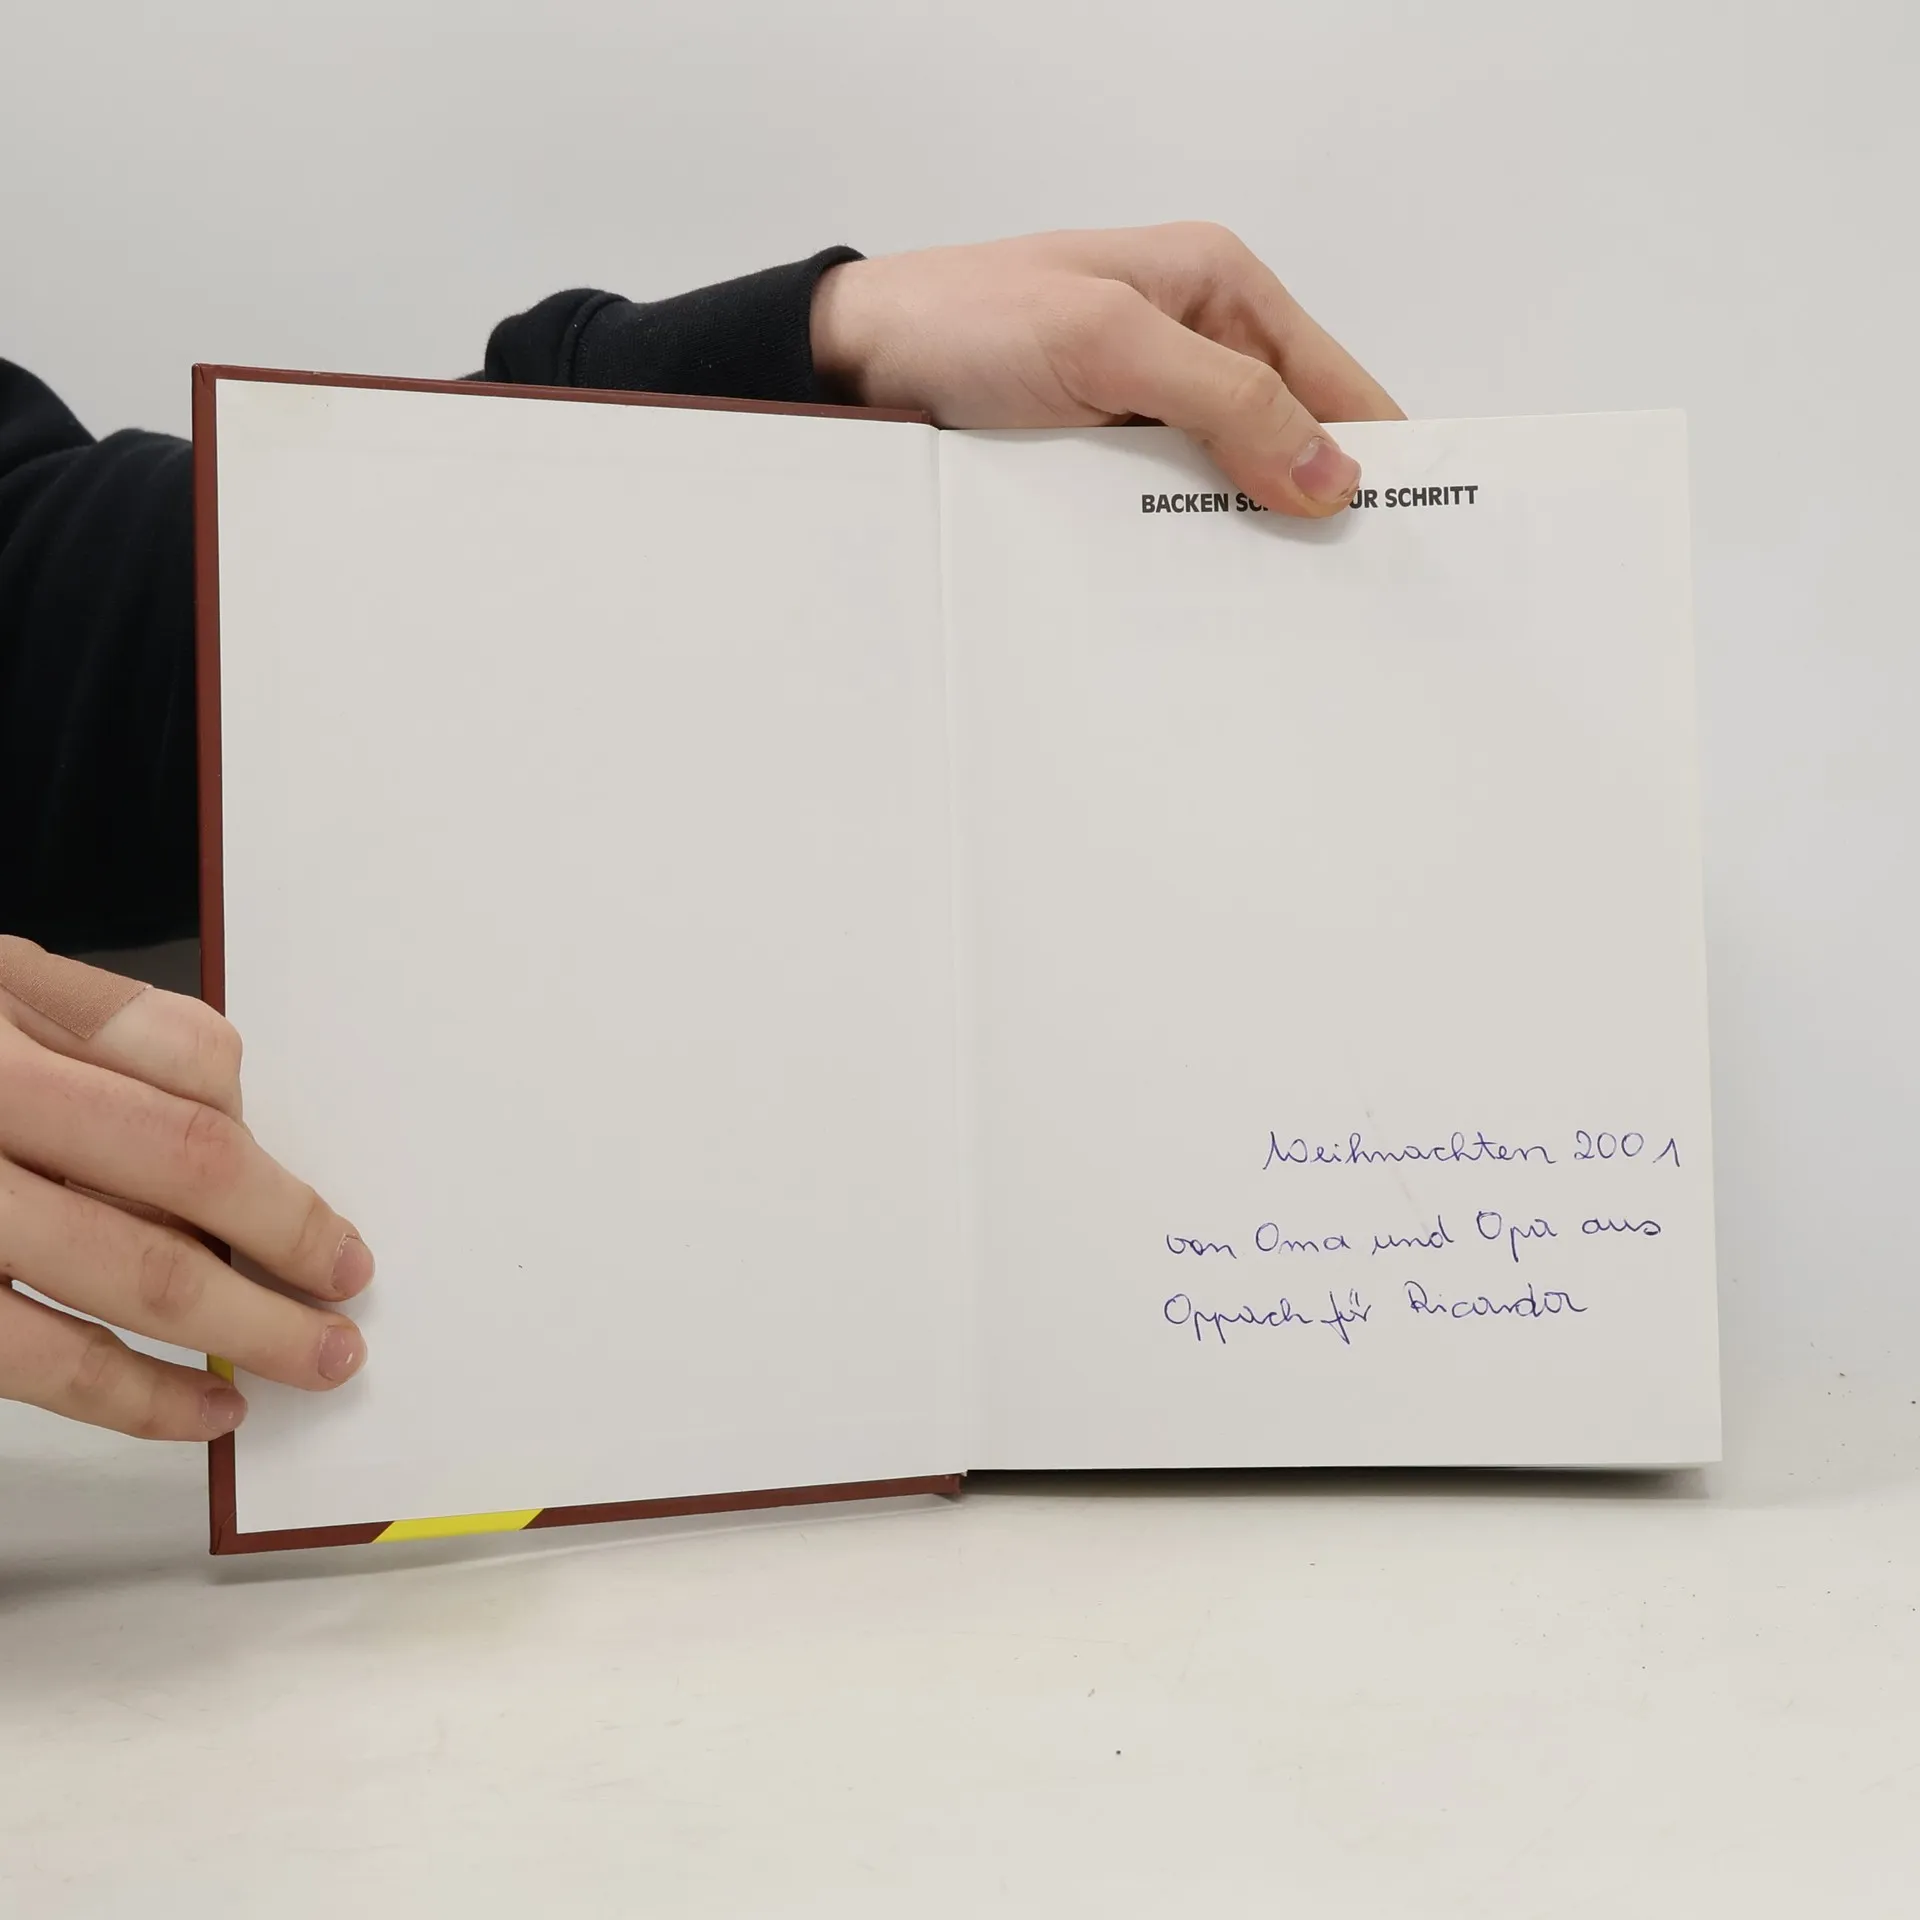 BACKEN SC UR SCHRITT
Weihnachten 2001
von Oma und Opa aus
Oppach für Ricarda